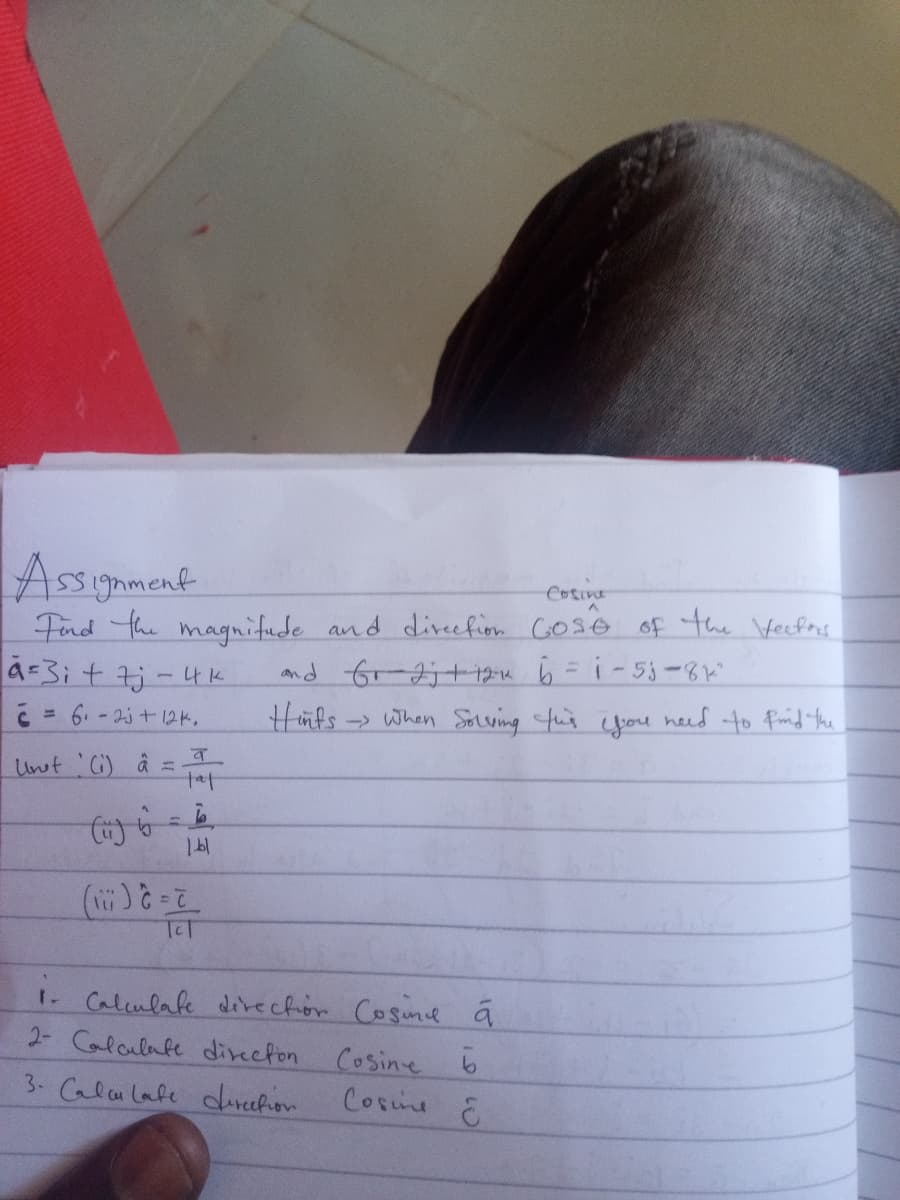 Assignment
Find the magnitude and direction Cosine Cosθ of the Vectors
ā=3i + 7j - 4k and 6i - 2j + 12k b̄ = i - 5j - 8k
c̄ = 6i - 2j + 12k. Hints → When Solving this you need to find the
Unit : (i) â = ā
|a|
(ii) b̂ = b̄
|b|
(iii) ĉ = c̄
|c|
1- Calculate direction Cosine ā
2- Calculate direction Cosine b̄
3. Calculate direction Cosine c̄